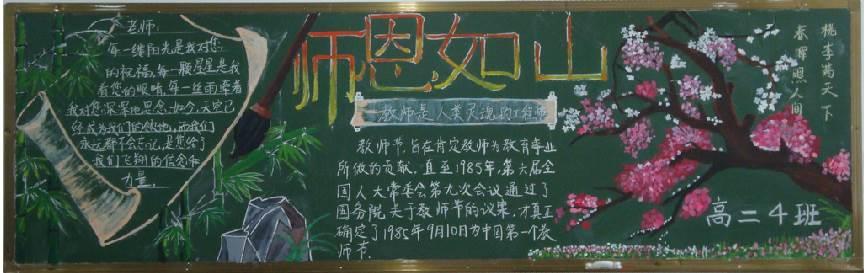 老师:
每一缕阳光是我对您
的祝福,每一颗星星是我
看您的眼睛,每一丝雨牵着
我对您深深地思念,如今,天空已
经成为我们的领地,而我们
永远都不会忘记,是您给了
我们飞翔的信念和
力量。
师恩如山
教师是人类灵魂的工程师
教师节,旨在肯定教师为教育事业
所做的贡献。直至1985年,第六届全
国人大常委会第九次会议通过了
国务院关于教师节的议案,才真正
确定了1985年9月10日为中国第一个教
师节.
桃李满天下
春晖照人间
高二4班